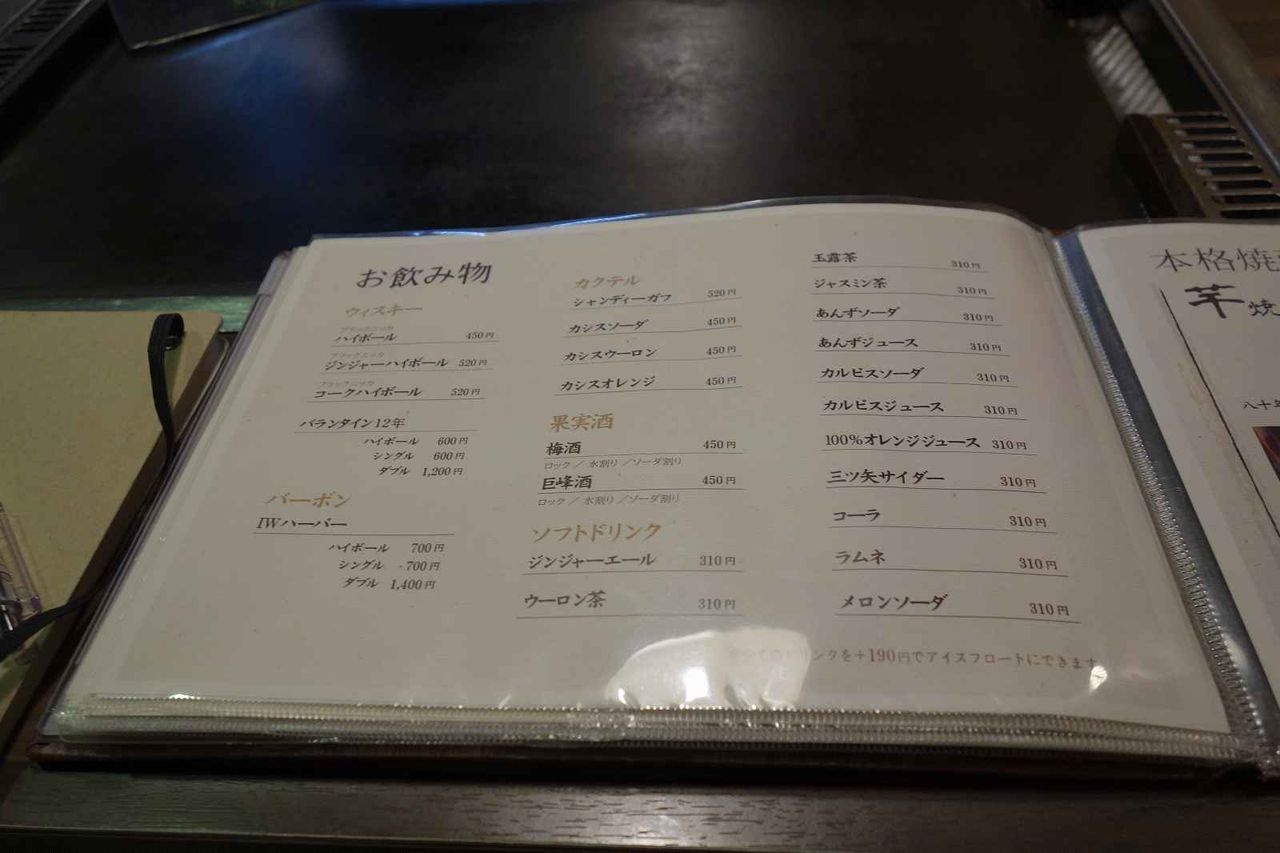 お飲み物
ウィスキー
ブラックニッカ
ハイボール 450円
ブラックニッカ
ジンジャーハイボール 520円
ブラックニッカ
コークハイボール 520円
バランタイン12年
ハイボール 600円
シングル 600円
ダブル 1,200円
バーボン
IWハーパー
ハイボール 700円
シングル 700円
ダブル 1,400円
カクテル
シャンディーガフ 520円
カシスソーダ 450円
カシスウーロン 450円
カシスオレンジ 450円
果実酒
梅酒 450円
ロック／水割り／ソーダ割り
巨峰酒 450円
ロック／水割り／ソーダ割り
ソフトドリンク
ジンジャーエール 310円
ウーロン茶 310円
玉露茶 310円
ジャスミン茶 310円
あんずソーダ 310円
あんずジュース 310円
カルピスソーダ 310円
カルピスジュース 310円
100%オレンジジュース 310円
三ツ矢サイダー 310円
コーラ 310円
ラムネ 310円
メロンソーダ 310円
ドリンクを+190円でアイスフロートにできます
本格焼
芋焼
八十年